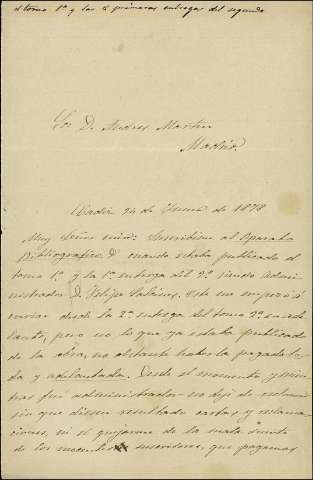 el tomo 1º y las 2 primeras entregas del segundo
Sor D. Andres Martin
Madrid.
Cadiz 24 de Junio de 1878
Muy Señor mio: Suscribime al Aparato
Bibliografico D. cuando estaba publicado el
tomo 1º y la 1ª entrega del 2º siendo Admi-
nistrador D. Felipe Este me empezó á
enviar desde la 2ª entrega del tomo 2º en ade
lante, pero no lo que ya estaba publicado
de la obra, no obstante haberla pagado to-
da y adelantada. Desde el momento y mien
tras fué administrador no dejé de reclamar
sin que diesen resultado cartas y reclama
ciones, ni el quejarme de la mala suerte
de los suscritores, que pagamos